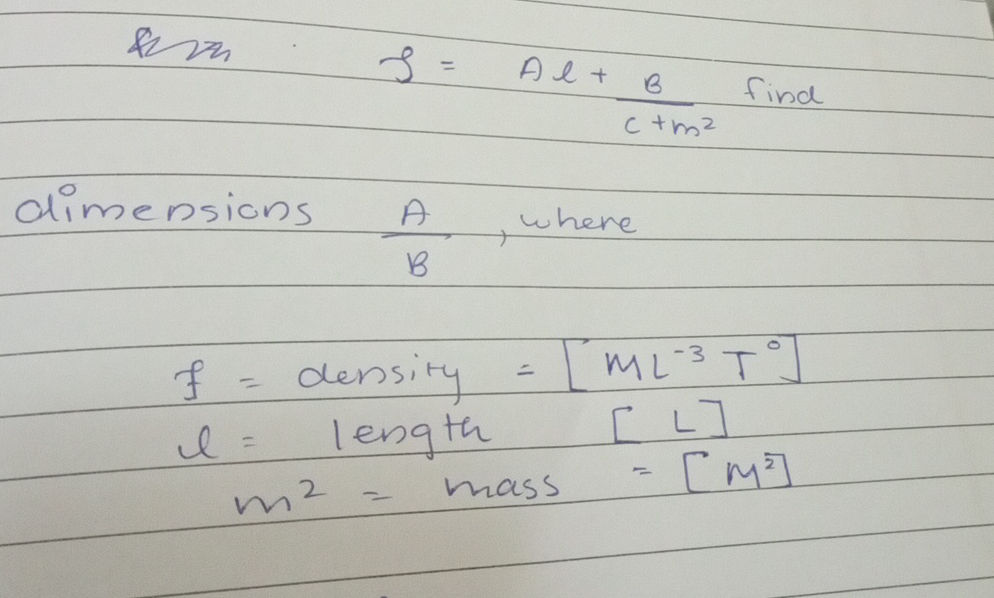 ρ = Al + B/(c + m²) find
dimensions A/B, where
f = density = [ML⁻³T⁰]
l = length [L]
m² = mass = [M²]